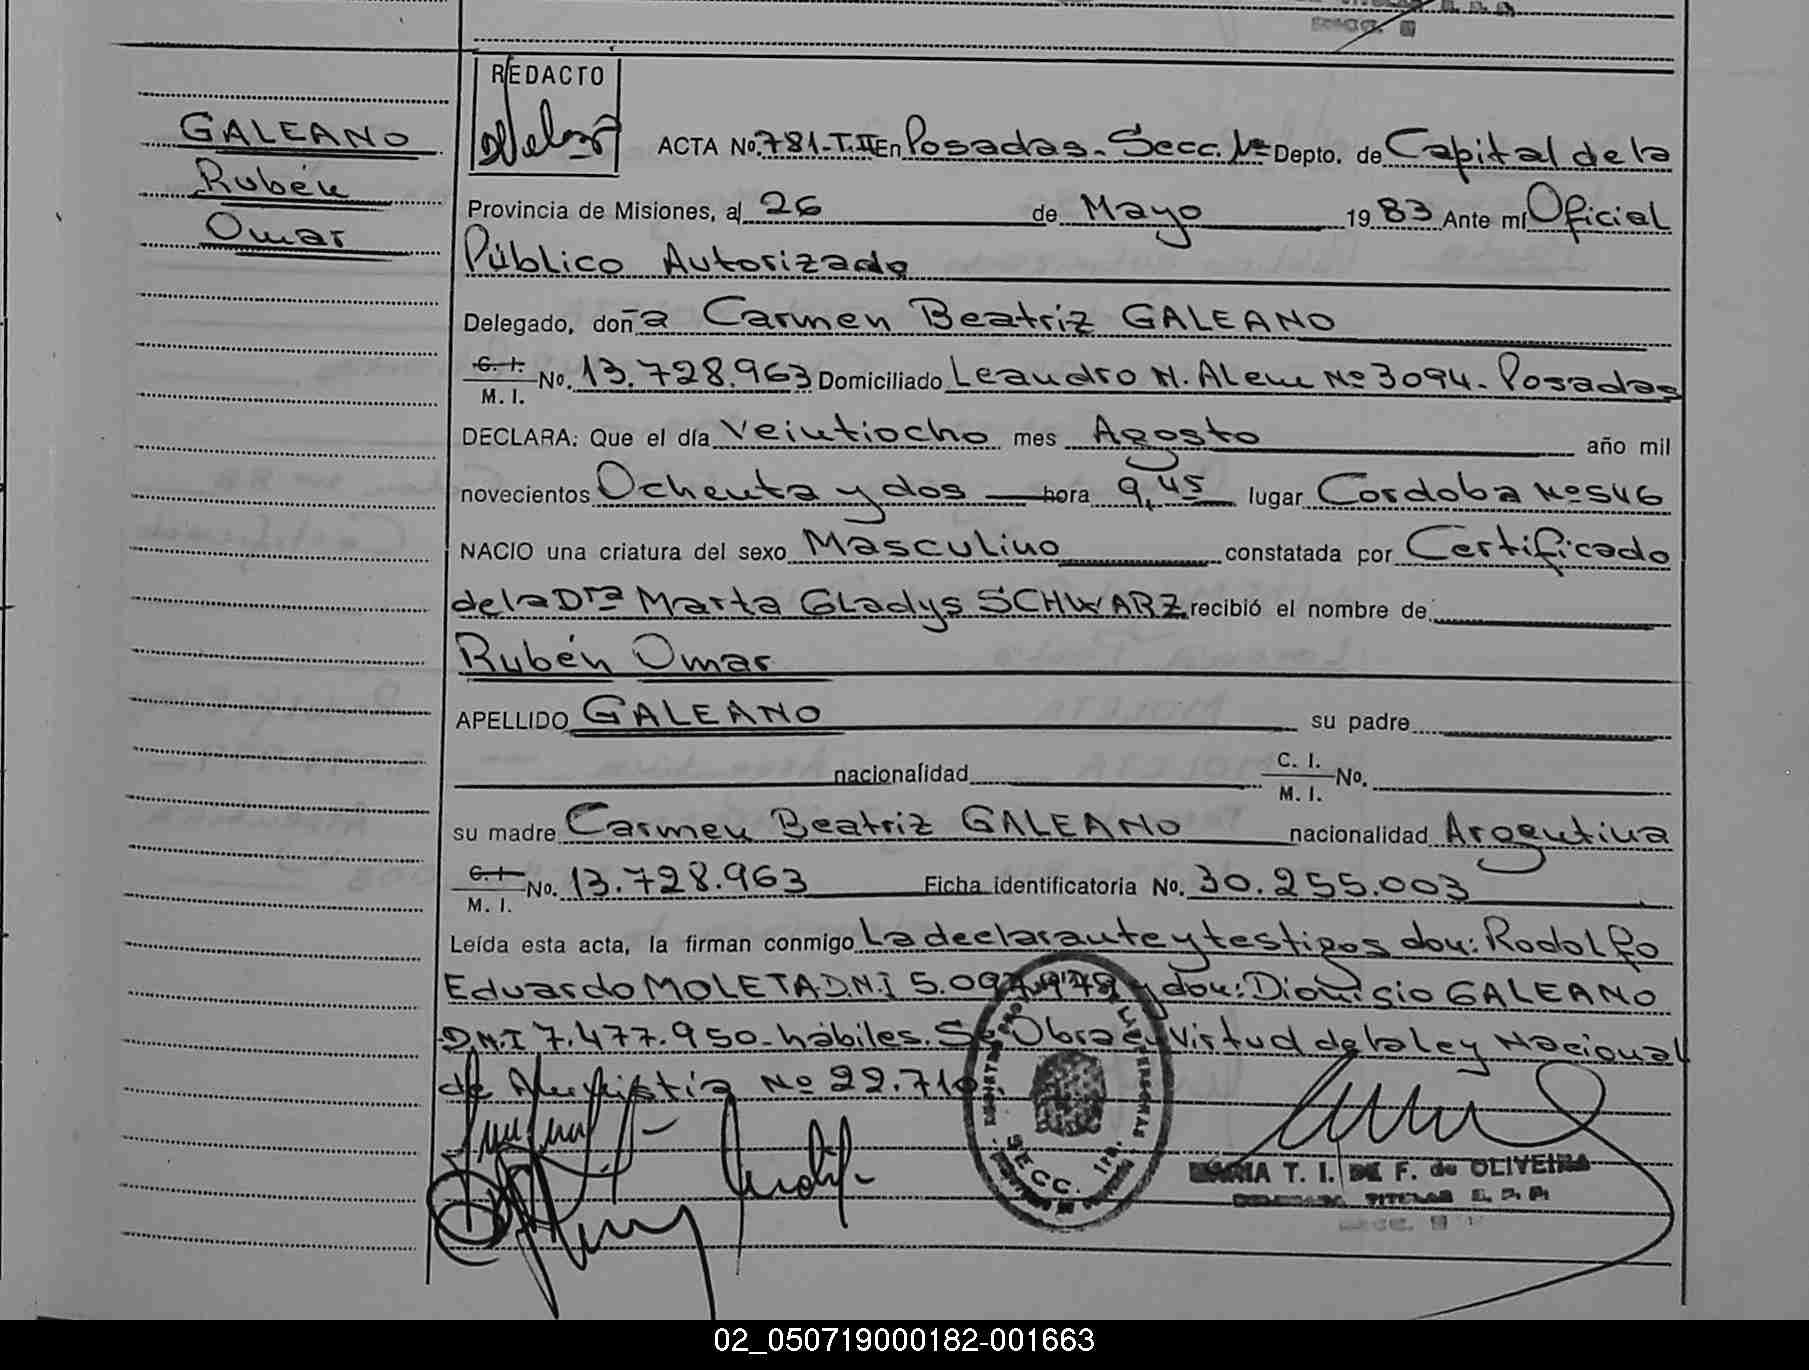 SECC. 1
GALEANO
Rubén
Omar
REDACTO
ACTA No. 781-T.II En Posadas - Secc. 1ra Depto. de Capital de la
Provincia de Misiones, al 26 de Mayo 1983 Ante mí Oficial
Público Autorizado
Delegado, doña Carmen Beatriz GALEANO
C. I. / M. I. No. 13.728.963 Domiciliado Leandro N. Alem No 3094. Posadas
DECLARA: Que el día Veintiocho mes Agosto año mil
novecientos Ochenta y dos hora 9,45 lugar Cordoba No 546
NACIO una criatura del sexo Masculino constatada por Certificado
de la Dra Marta Gladys SCHWARZ recibió el nombre de
Rubén Omar
APELLIDO GALEANO su padre
nacionalidad C. I. / M. I. No.
su madre Carmen Beatriz GALEANO nacionalidad Argentina
C. I. / M. I. No. 13.728.963 Ficha identificatoria No. 30.255.003
Leída esta acta, la firman conmigo La declarante y testigos don: Rodolfo
Eduardo MOLETA D.N.I 5.097.978 y don: Dionisio GALEANO
D.N.I 7.477.950 - hábiles. Se Obra en Virtud de la ley Nacional
de Amnistia No 22.710.
SECC. 1ra.
MARIA T. I. DE F. de OLIVEIRA
02_050719000182-001663